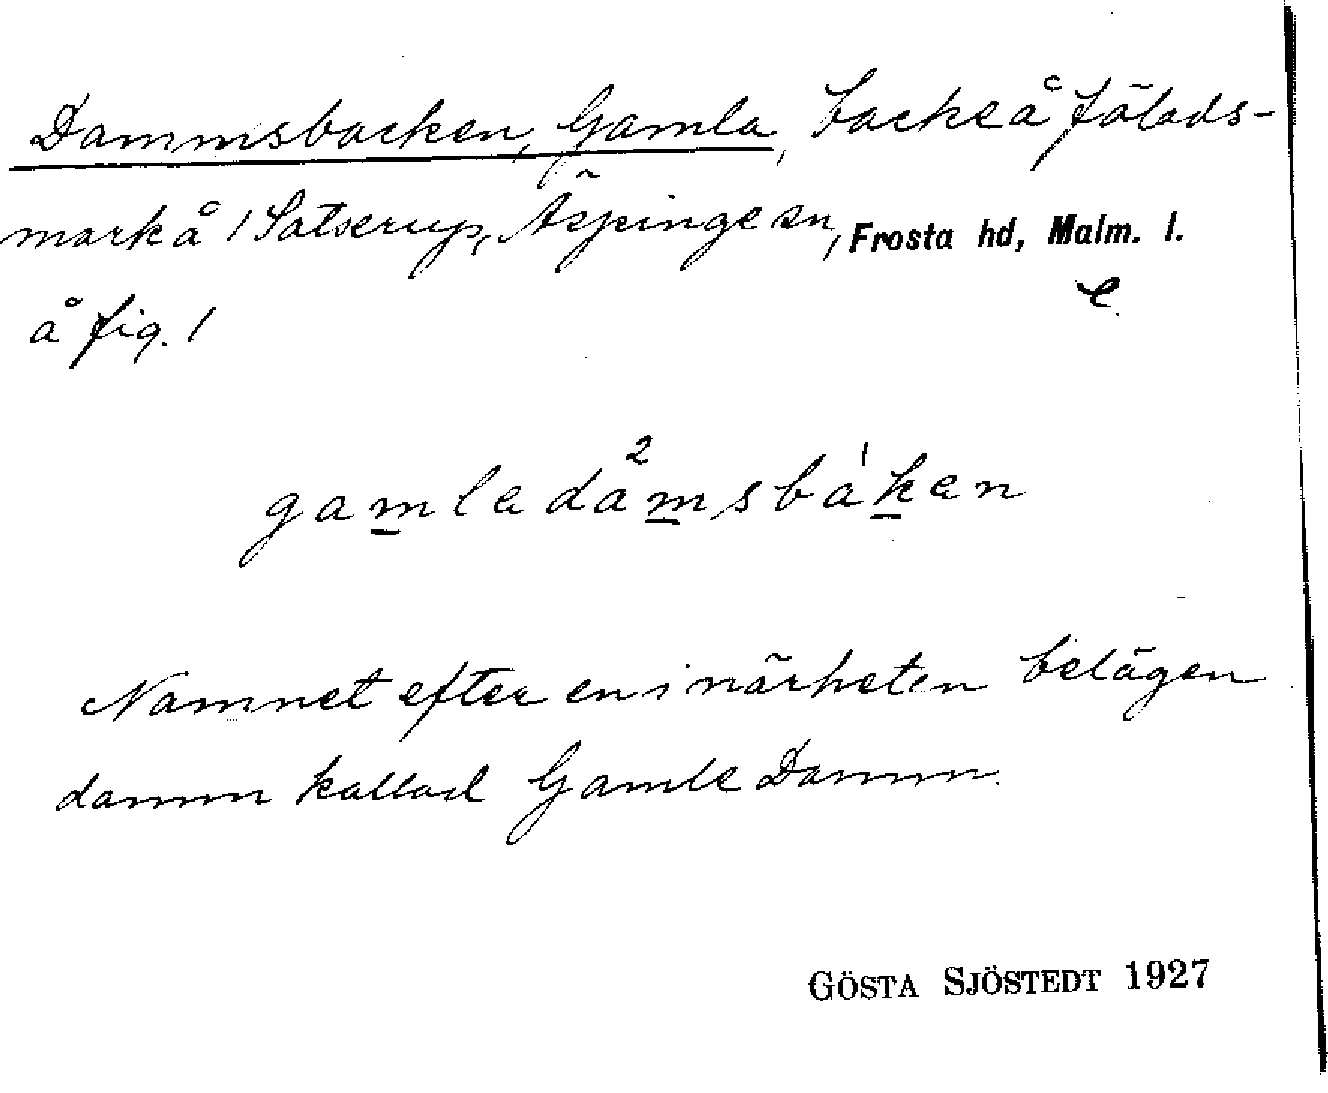 Dammsbacken, Gamla, backe å fälads-
mark å 1 Satserup, Äspinge sn, Frosta hd, Malm. l.
e
å fig. 1
gamladamsbaken
2 1
Namnet efter en i närheten belägen
damm kallad Gamle Damm.
GÖSTA SJÖSTEDT 1927